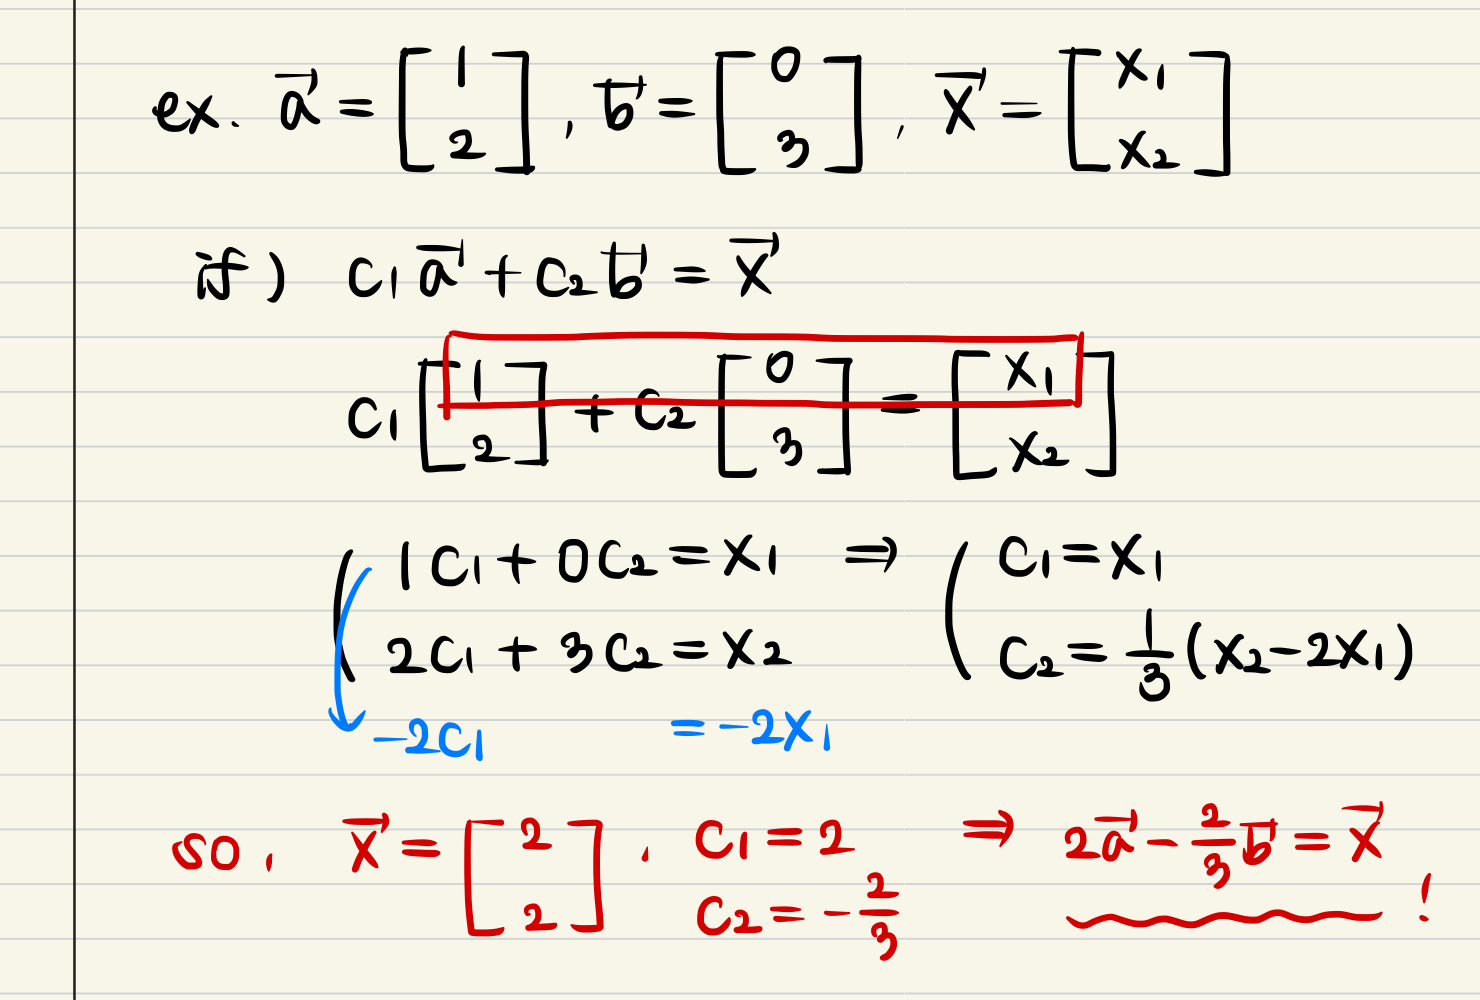 ex. a⃗ = [1 2], b⃗ = [0 3], x⃗ = [x₁ x₂]
if) c₁a⃗ + c₂b⃗ = x⃗
c₁[1 2] + c₂[0 3] = [x₁ x₂]
1c₁ + 0c₂ = x₁ ⇒ c₁ = x₁
2c₁ + 3c₂ = x₂ c₂ = 1/3(x₂ - 2x₁)
-2c₁ = -2x₁
so, x⃗ = [2 2], c₁ = 2 ⇒ 2a⃗ - 2/3b⃗ = x⃗ !
c₂ = -2/3